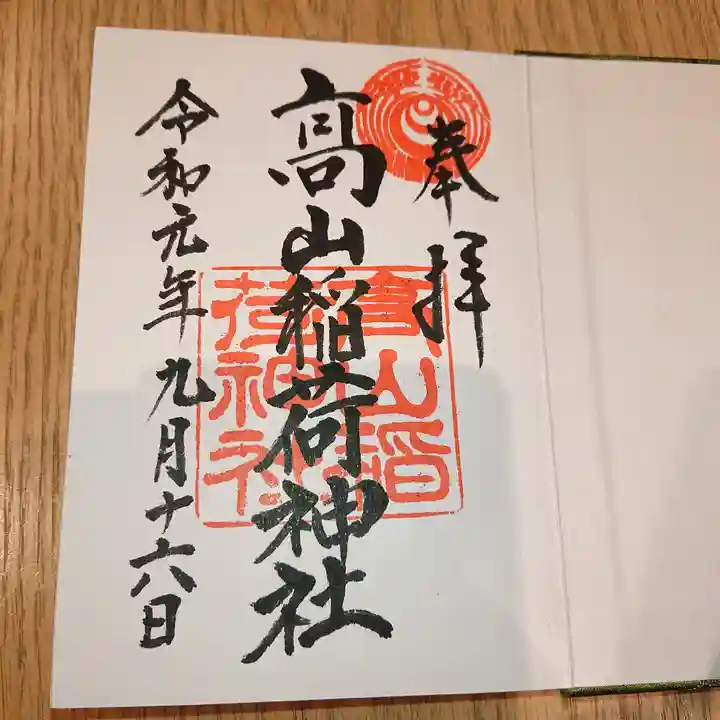 奉拝
高山稲荷神社
高山稲荷神社
令和元年九月十六日